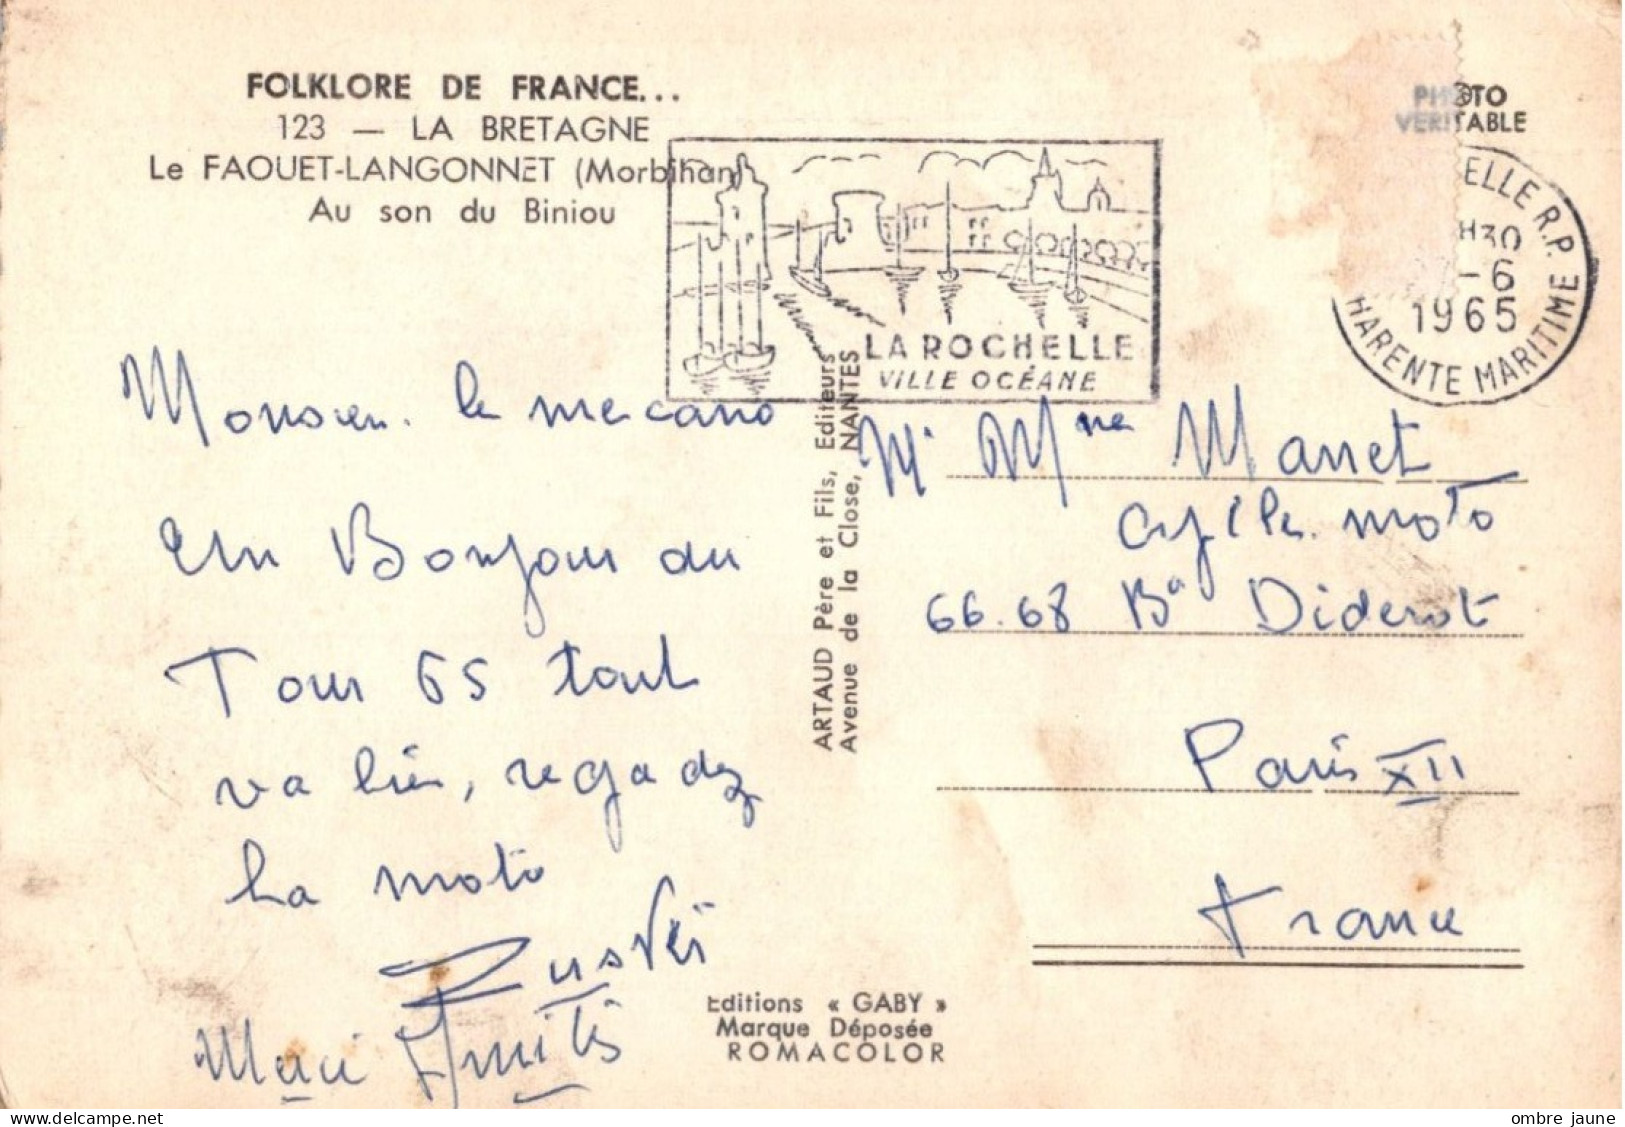 FOLKLORE DE FRANCE...
123 — LA BRETAGNE
Le FAOUET-LANGONNET (Morbihan)
Au son du Biniou
PHOTO
VERITABLE
ELLE R.P.
H30
-6
1965
HARENTE MARITIME
LA ROCHELLE
VILLE OCÉANE
Monsieur le mecano
Un Bonjour du
Tour 65 tout
va bien, regadez
la moto
Merci Amitis
ARTAUD Père et Fils, Editeurs
Avenue de la Close, NANTES
Mr Mme Manet
moto
66.68 Bd Diderot
Paris XII
France
Editions « GABY »
Marque Déposée
ROMACOLOR
ombre jaune